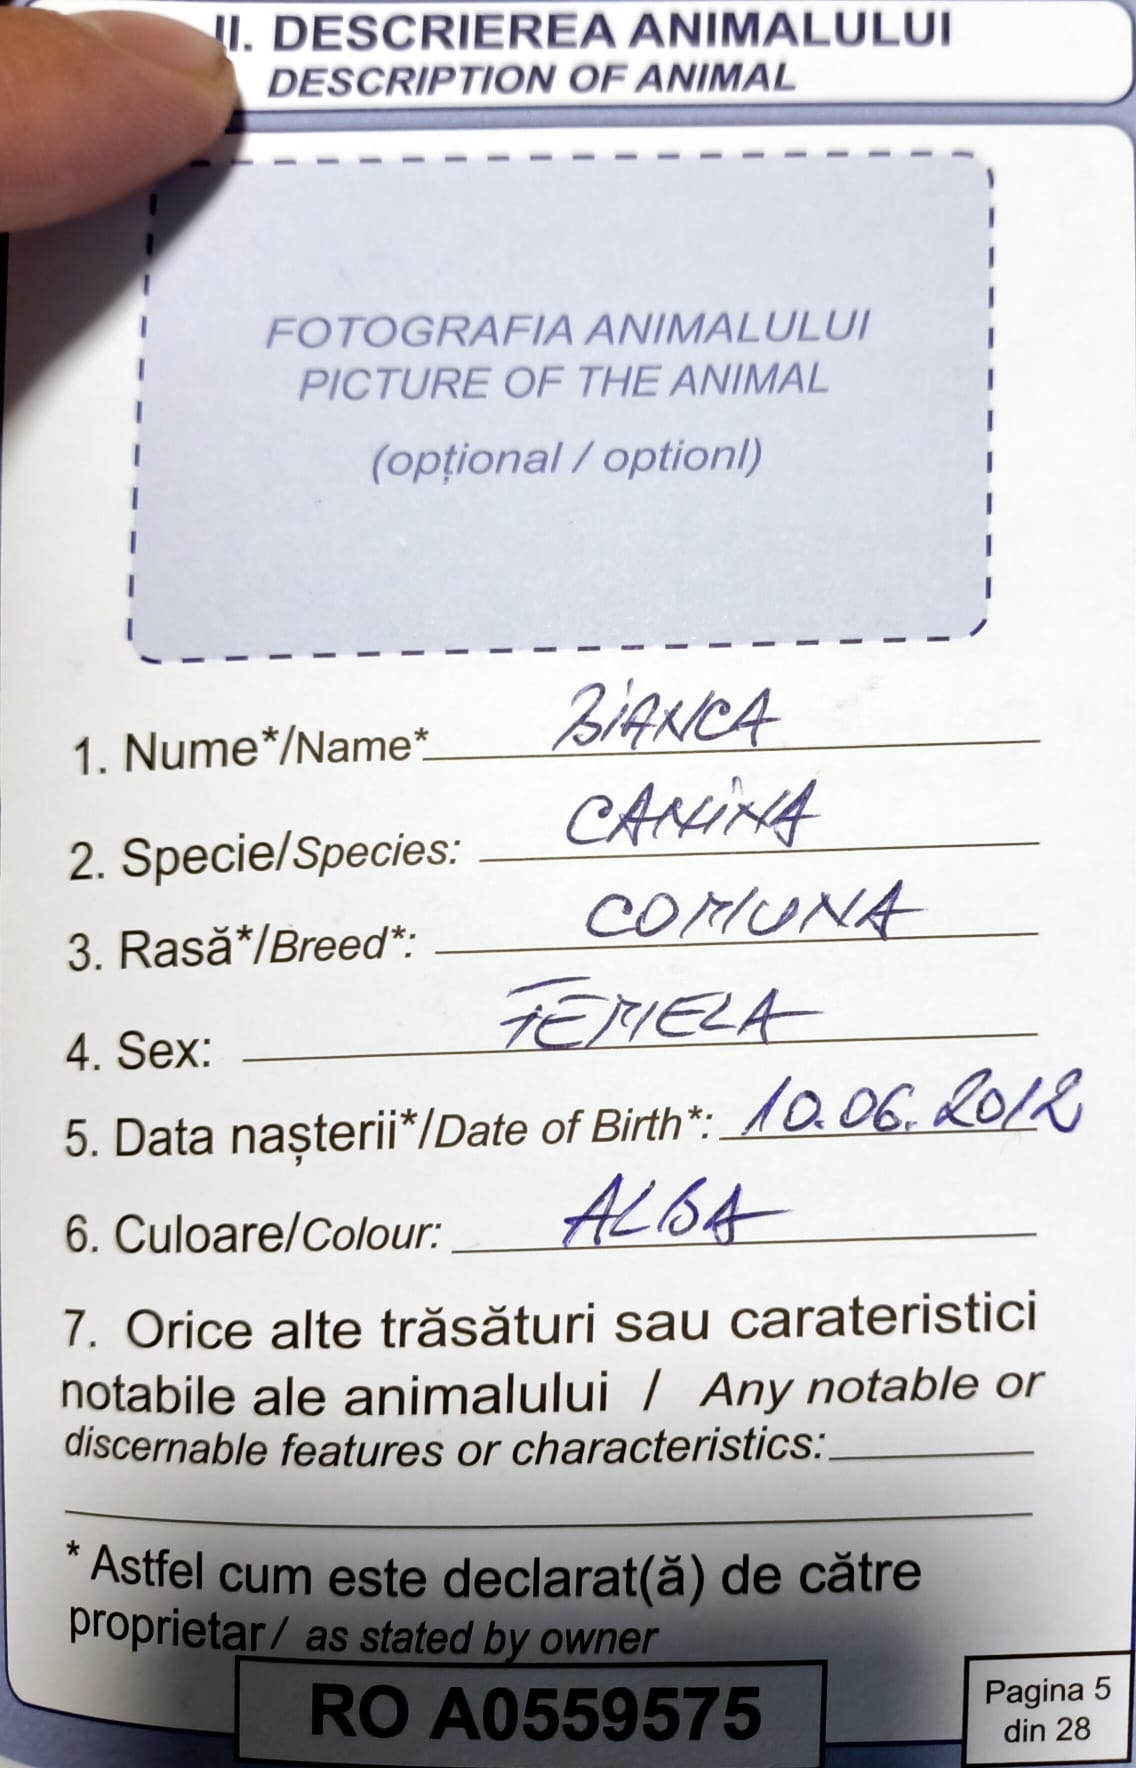 II. DESCRIEREA ANIMALULUI
DESCRIPTION OF ANIMAL
FOTOGRAFIA ANIMALULUI
PICTURE OF THE ANIMAL
(opțional / optionl)
1. Nume*/Name* BIANCA
2. Specie/Species: CANINA
3. Rasă*/Breed*: COMUNA
4. Sex: FEMELA
5. Data nașterii*/Date of Birth*: 10.06.2012
6. Culoare/Colour: ALBA
7. Orice alte trăsături sau carateristici
notabile ale animalului / Any notable or
discernable features or characteristics:
* Astfel cum este declarat(ă) de către
proprietar/ as stated by owner
RO A0559575
Pagina 5
din 28